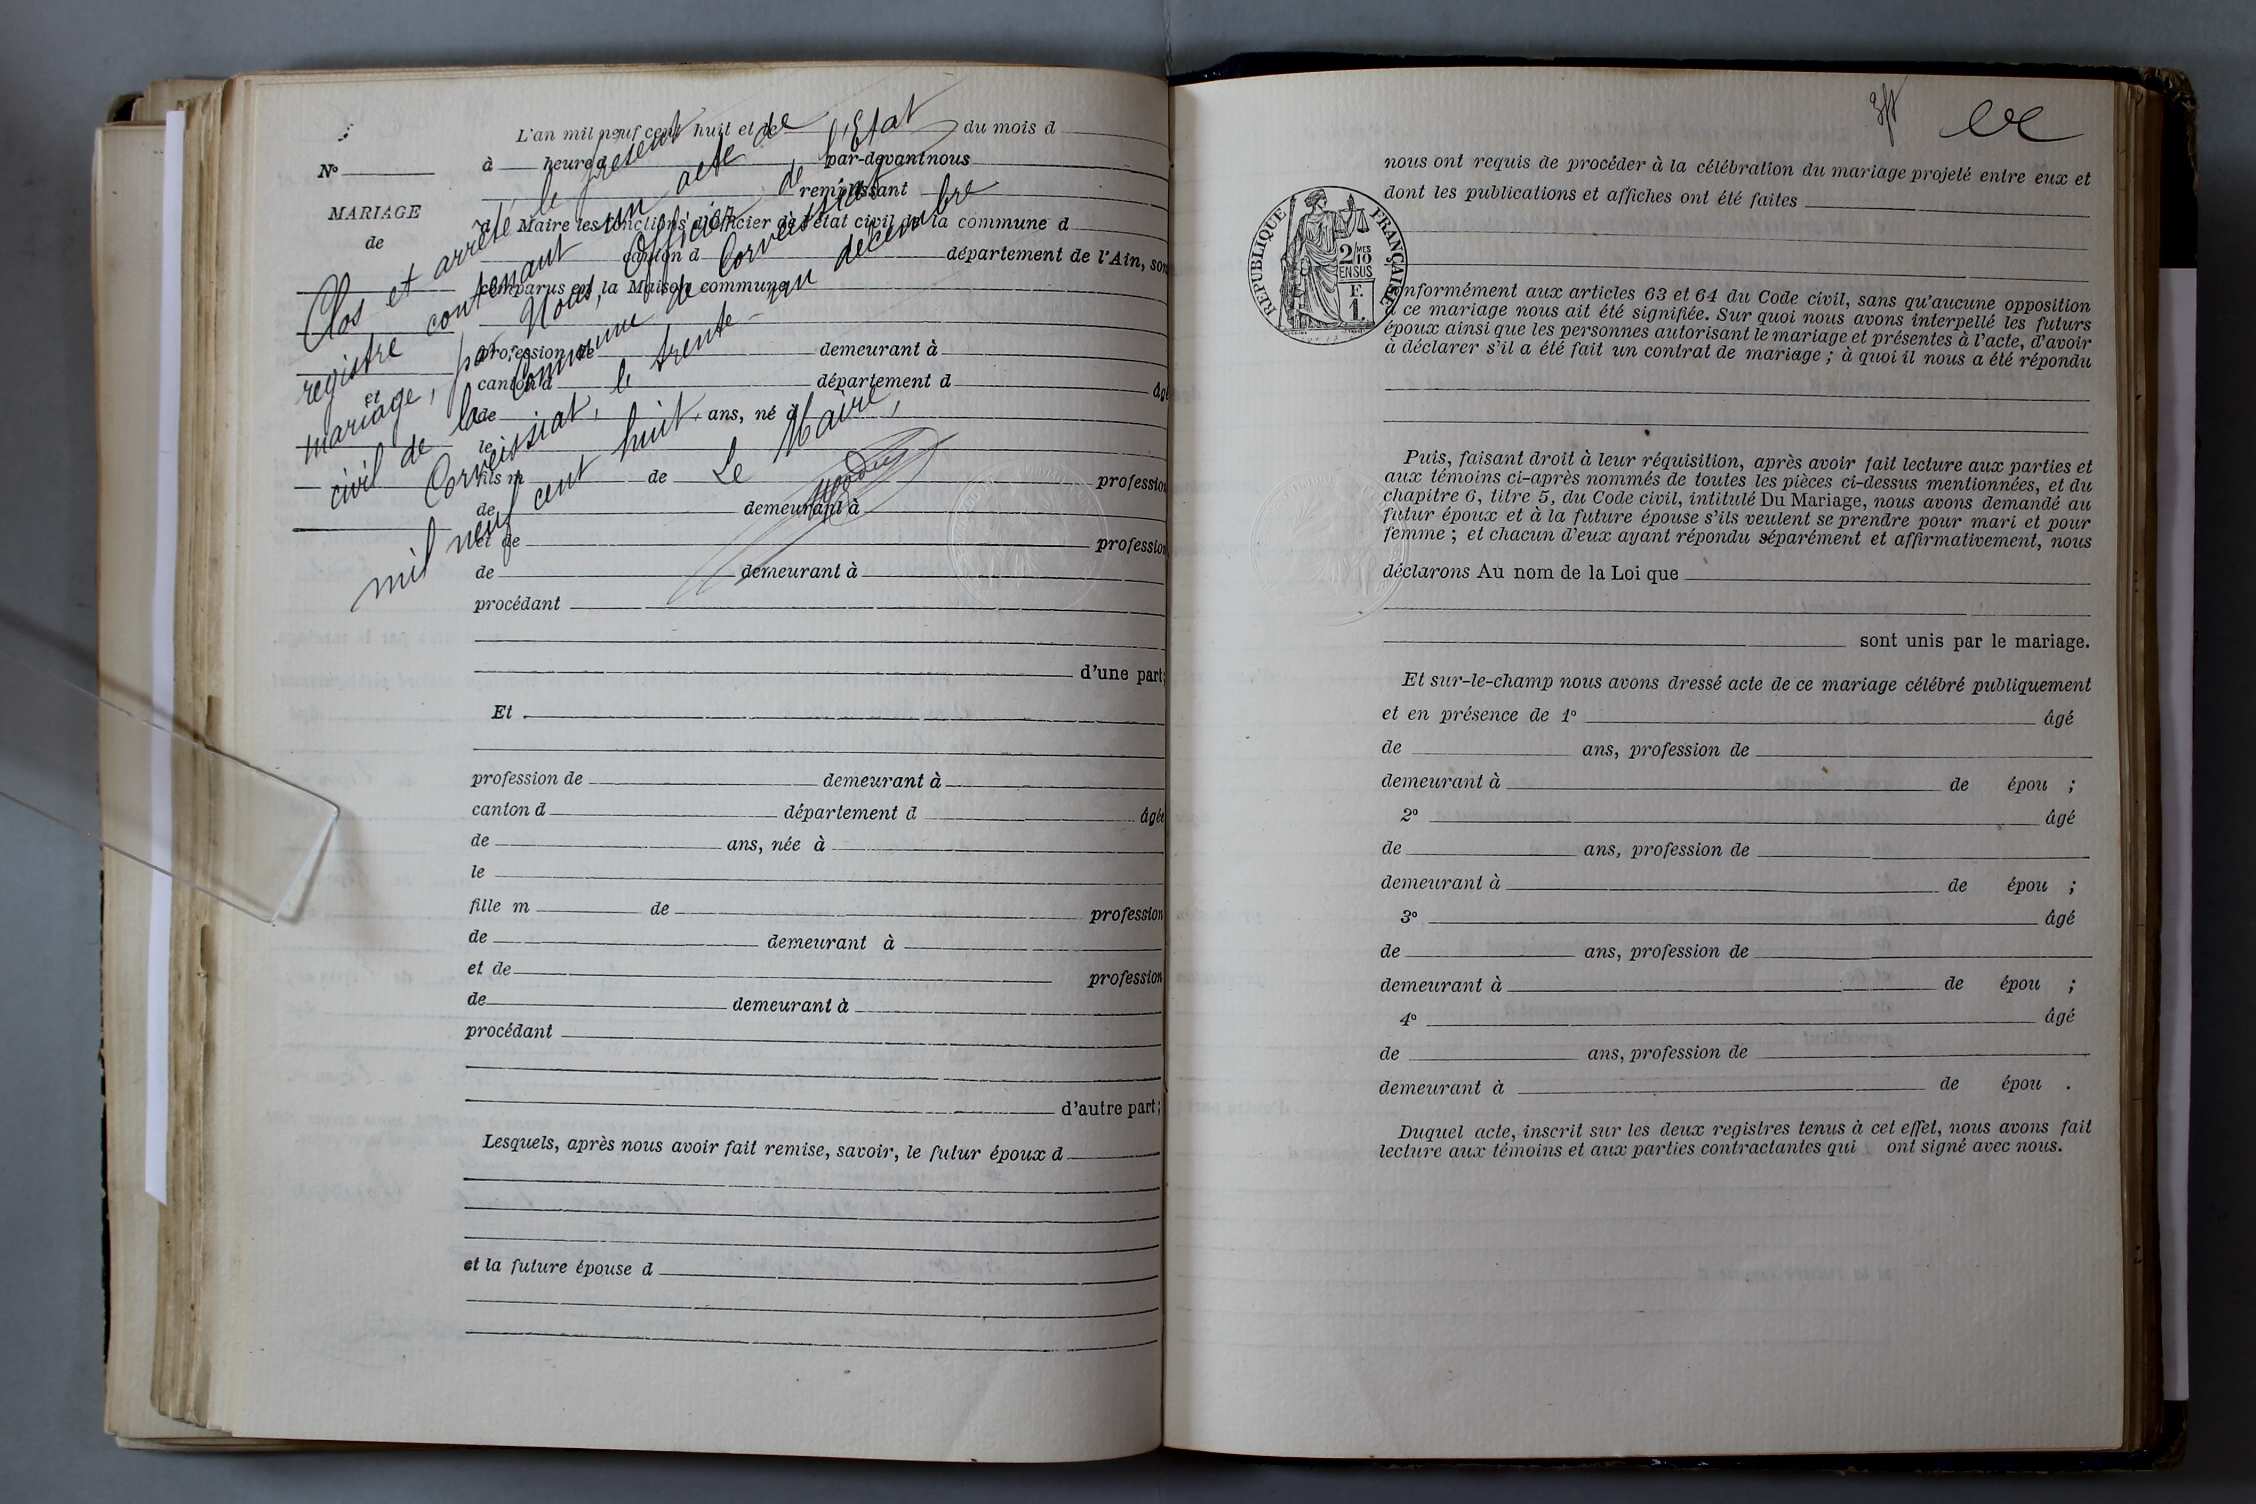 L'an mil neuf cent huit et le du mois d
à heure d par-devant nous
N°
remplissant
MARIAGE
de
d Maire les fonctions d'officier de l'état civil de la commune d
canton d département de l'Ain, sont
comparus en la Maison commune
profession de demeurant à
canton d département d âgé
et
de ans, né à
le
fils m de profession
de demeurant à
et de profession
de demeurant à
procédant
d'une part;
Clos et arrêté le présent
registre contenant un acte de
mariage, par Nous, Officier de l'Etat
civil de la Commune de Corveissiat
Corveissiat, le trente-un décembre
mil neuf cent huit.
Le Maire,
Et
profession de demeurant à
canton d département d âgée
de ans, née à
le
fille m de profession
de demeurant à
et de profession
de demeurant à
procédant
d'autre part;
Lesquels, après nous avoir fait remise, savoir, le futur époux d
et la future épouse d
nous ont requis de procéder à la célébration du mariage projeté entre eux et
dont les publications et affiches ont été faites
RÉPUBLIQUE FRANÇAISE
2/10
MES
EN SUS
F.
1.
conformément aux articles 63 et 64 du Code civil, sans qu'aucune opposition
à ce mariage nous ait été signifiée. Sur quoi nous avons interpellé les futurs
époux ainsi que les personnes autorisant le mariage et présentes à l'acte, d'avoir
à déclarer s'il a été fait un contrat de mariage ; à quoi il nous a été répondu
Puis, faisant droit à leur réquisition, après avoir fait lecture aux parties et
aux témoins ci-après nommés de toutes les pièces ci-dessus mentionnées, et du
chapitre 6, titre 5, du Code civil, intitulé Du Mariage, nous avons demandé au
futur époux et à la future épouse s'ils veulent se prendre pour mari et pour
femme ; et chacun d'eux ayant répondu séparément et affirmativement, nous
déclarons Au nom de la Loi que
sont unis par le mariage.
Et sur-le-champ nous avons dressé acte de ce mariage célébré publiquement
et en présence de 1° âgé
de ans, profession de
demeurant à de épou ;
2° âgé
de ans, profession de
demeurant à de épou ;
3° âgé
de ans, profession de
demeurant à de épou ;
4° âgé
de ans, profession de
demeurant à de épou .
Duquel acte, inscrit sur les deux registres tenus à cet effet, nous avons fait
lecture aux témoins et aux parties contractantes qui ont signé avec nous.